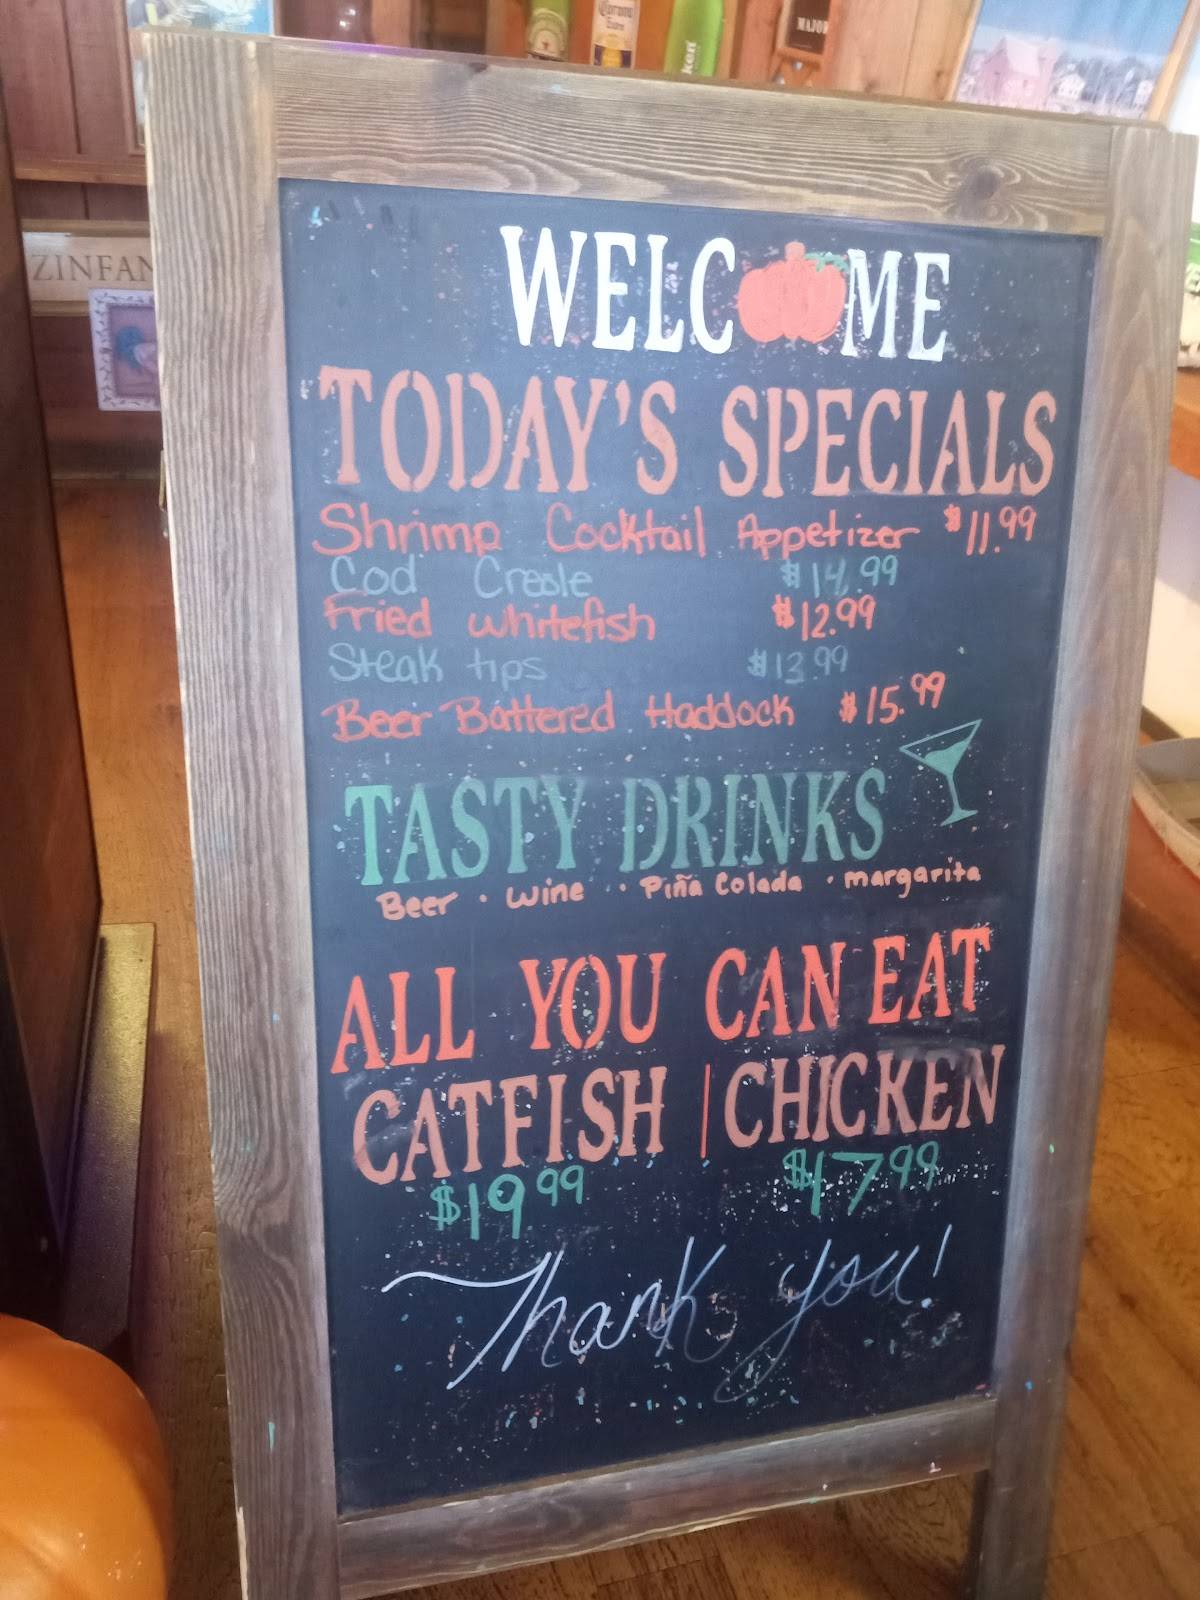 Corona
Extra
MAJOR
ZINFAN
WELC ME
TODAY'S SPECIALS
Shrimp Cocktail Appetizer $11.99
Cod Creole $14.99
Fried whitefish $12.99
Steak tips $13.99
Beer Battered Haddock $15.99
TASTY DRINKS
Beer · Wine · · Piña Colada · margarita
ALL YOU CAN EAT
CATFISH | CHICKEN
$19.99 $17.99
Thank you!